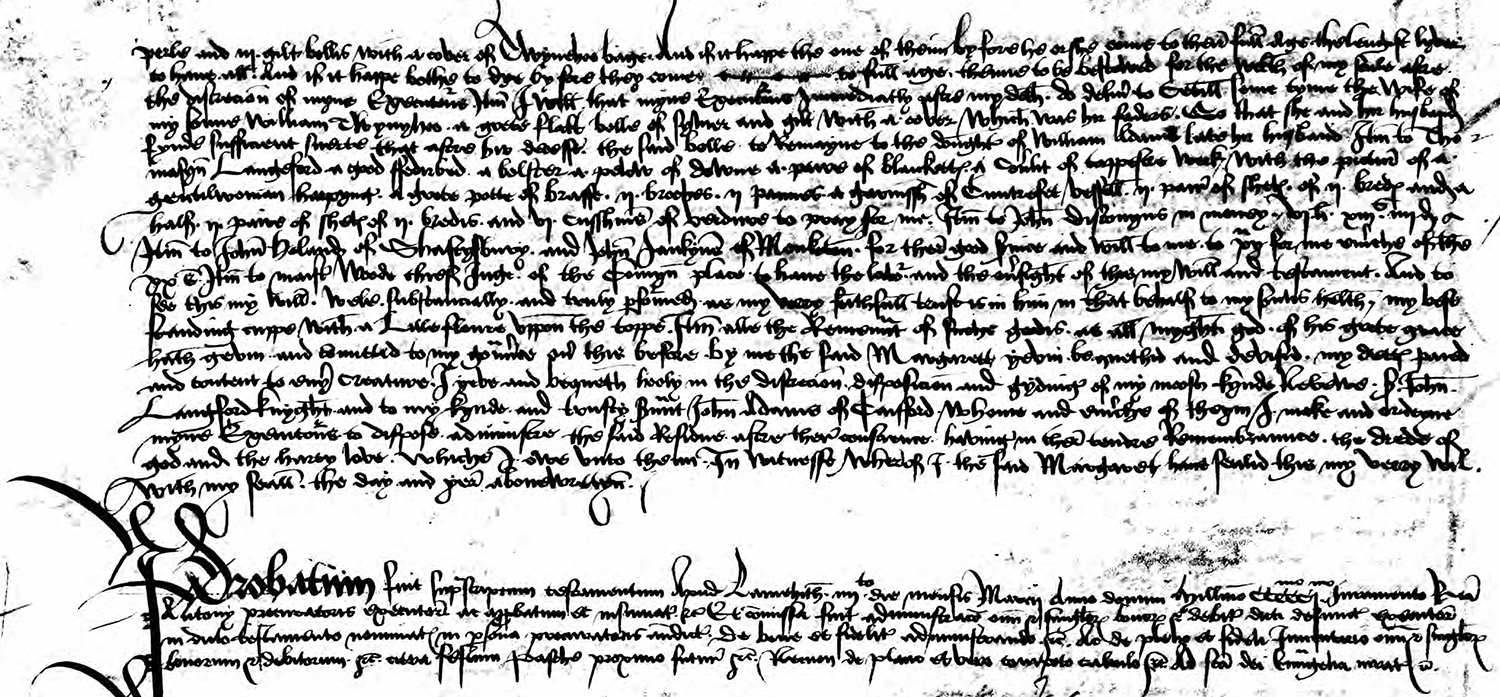 perle and iij gilt bollis with a cover of Twynehoo bage. And if it happe the one of theim by fore he or she come to their full Age the lengest lyver
to have all. And if it happe bothe to dye by fore they come to full age. theme to be bestowed for the welth of my soule aftre
the discrecion of myne Executours Itm I will that myne Executours Immediatly aftre my deth do delivr to some tyme the wife of
my sonne William Twynyhoo a grete flatt bolle of sylver and gilt with a cover which was hir faders. So that she and hir husbond
fynde sufficient suerte that aftre hir decesse the said bolle to Remayne to the doughtr of William late hir husband Itm to Tho
masyn Langeford a good ffedirbed a bolster a pelow of downe a paire of blankettes a Covlit of tappestre werk with the pictur of a
gentilwoman harpyng. A grete potte of brasse. ij. broches. ij pannes a garnissh of Contrefet vessell. ij. pair of shetes of ij. bredes and a
half. ij. paire of shetes of ij. bredis. and vj. cusshins of verdure to pray for me. Itm to John in money. vjli. xiijs. iiijd
Itm to John Holand of Shaftysbury. and John Jankyns of Monkton. for their good svice and will to me. to pray for me eviche of thē
xxs Itm to maistr Wode chief Juge of the Comyn place to have the labr and the ovsight of this my will and testament. And to
see this my will. wele substancially. and truly pfōmed as my very faithfull trust is in him in that behalf to my soules helth, my beste
standing cuppe with a floure uppon the toppe. Itm alle the Remennt of suche godis. as all myghti god. of his grete grace
hath gevin and cōmitted to my govnce ovr this before by me the said Margarett yevin bequethid and devised. my dettes paied
and content to evy creature. I yeve and bequeth hooly in the discrecion disposicion and gyding of my moost kynde Nevewe. Sr. John
Langford knyght and to my kynde and trusty svnt John Adams of Caufford whome and eviche of theym I make and ordeyne
myne Executours to dispose administre the said Residue aftre their conscience. having in their tendre Remembraunce. the drede of
god and the harty love. whiche I owe unto theim. In witnesse wherof I the said Margaret have sealid this my verry wil.
with my seall. the day and yere abovewrittyn.
Probatum fuit suprascriptum testamentum Apud Lamehith. iiijto. die mensis Marcij Anno domini Millimo CCCCmo mo Juramento
Antony procuratoris executor ac approbatum et insinuat &c Et cōmissa fuit administraco oim & singlor bonor & debit dicti defuncti executor
in dicto testamento nominat in psona procuratoris andict. De bene et fidelit administrando &c. Ac de pleno et fideli Inventario oim & singlor
bonorum & debitorum &c. citra festum Pasche proximo futur &c. Necnon de plano et vero compoto calculo &c Ad sca dei Evangelia iurat